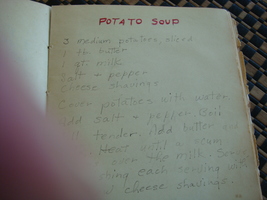 POTATO SOUP
3 medium potatoes, sliced
butter
1 qt. milk
Salt + pepper
cheese shavings
Cover potatoes with water
Add salt + pepper. Boil
til tender. Add butter
Heat until a scum
over the milk.
each serving with
cheese shavings.